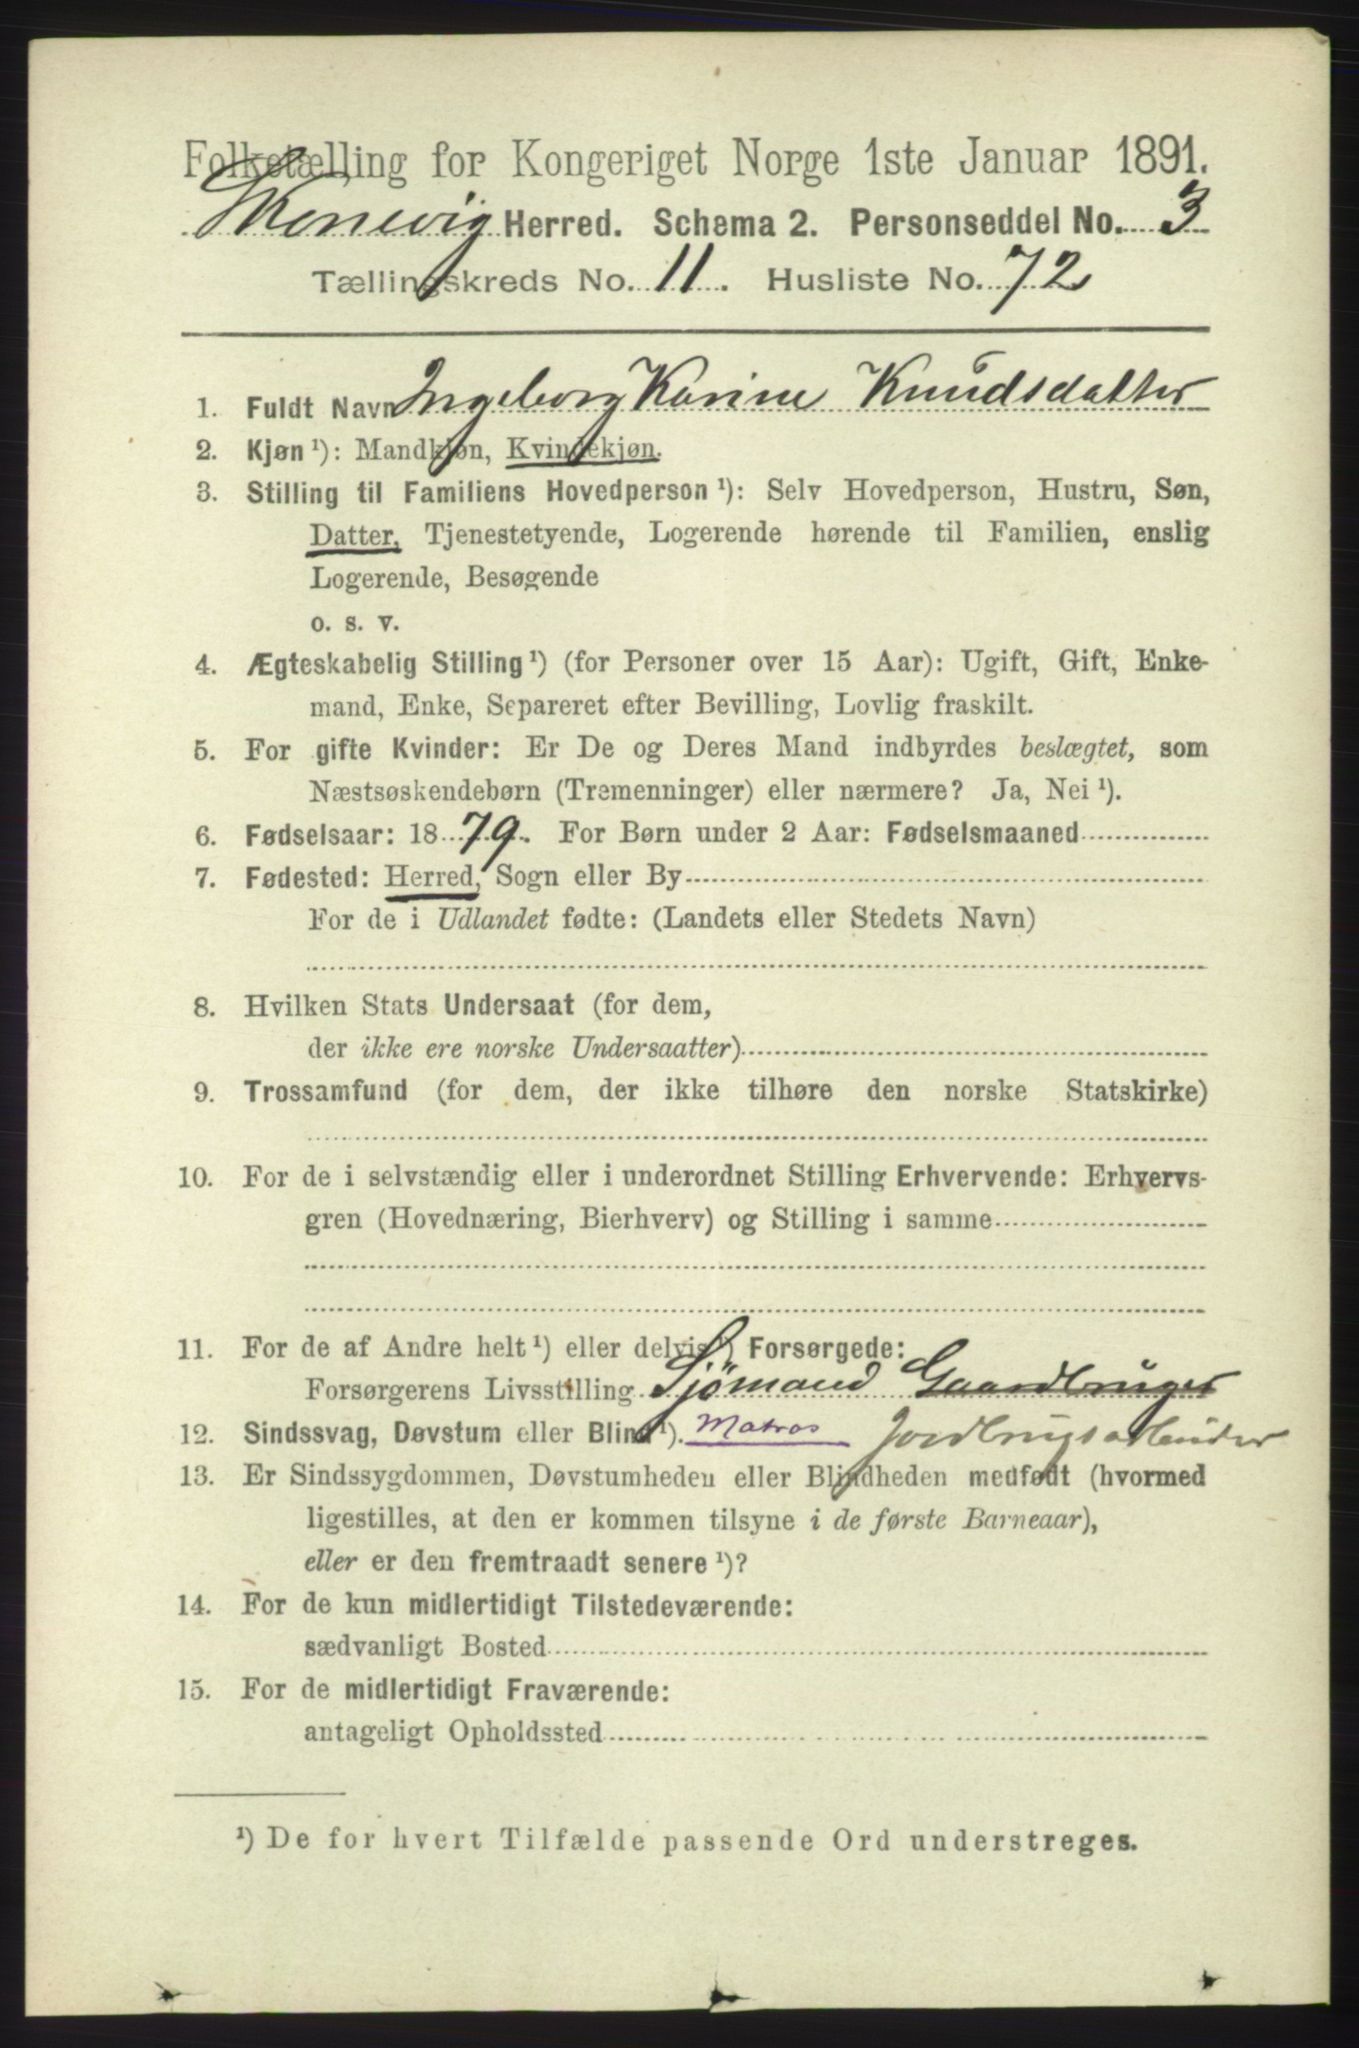 Folketælling for Kongeriget Norge 1ste Januar 1891.
Skonevig Herred. Schema 2. Personseddel No. 3
Tællingskreds No. 11. Husliste No. 72
1. Fuldt Navn Ingeborg Karine Knudsdatter
2. Kjøn ¹): Mandkjøn, Kvindekjøn.
3. Stilling til Familiens Hovedperson ¹): Selv Hovedperson, Hustru, Søn,
Datter, Tjenestetyende, Logerende hørende til Familien, enslig
Logerende, Besøgende
o. s. v.
4. Ægteskabelig Stilling ¹) (for Personer over 15 Aar): Ugift, Gift, Enke-
mand, Enke, Separeret efter Bevilling, Lovlig fraskilt.
5. For gifte Kvinder: Er De og Deres Mand indbyrdes beslægtet, som
Næstsøskendebørn (Tremenninger) eller nærmere? Ja, Nei ¹).
6. Fødselsaar: 1879. For Børn under 2 Aar: Fødselsmaaned
7. Fødested: Herred, Sogn eller By
For de i Udlandet fødte: (Landets eller Stedets Navn)
8. Hvilken Stats Undersaat (for dem,
der ikke ere norske Undersaatter)
9. Trossamfund (for dem, der ikke tilhøre den norske Statskirke)
10. For de i selvstændig eller i underordnet Stilling Erhvervende: Erhvervs-
gren (Hovednæring, Bierhverv) og Stilling i samme
11. For de af Andre helt ¹) eller delvis ¹) Forsørgede:
Forsørgerens Livsstilling Sjömand Gaardbruger
12. Sindssvag, Døvstum eller Blind ¹). Matros Jordbrugsarbeider
13. Er Sindssygdommen, Døvstumheden eller Blindheden medfødt (hvormed
ligestilles, at den er kommen tilsyne i de første Barneaar),
eller er den fremtraadt senere ¹)?
14. For de kun midlertidigt Tilstedeværende:
sædvanligt Bosted
15. For de midlertidigt Fraværende:
antageligt Opholdssted
¹) De for hvert Tilfælde passende Ord understreges.